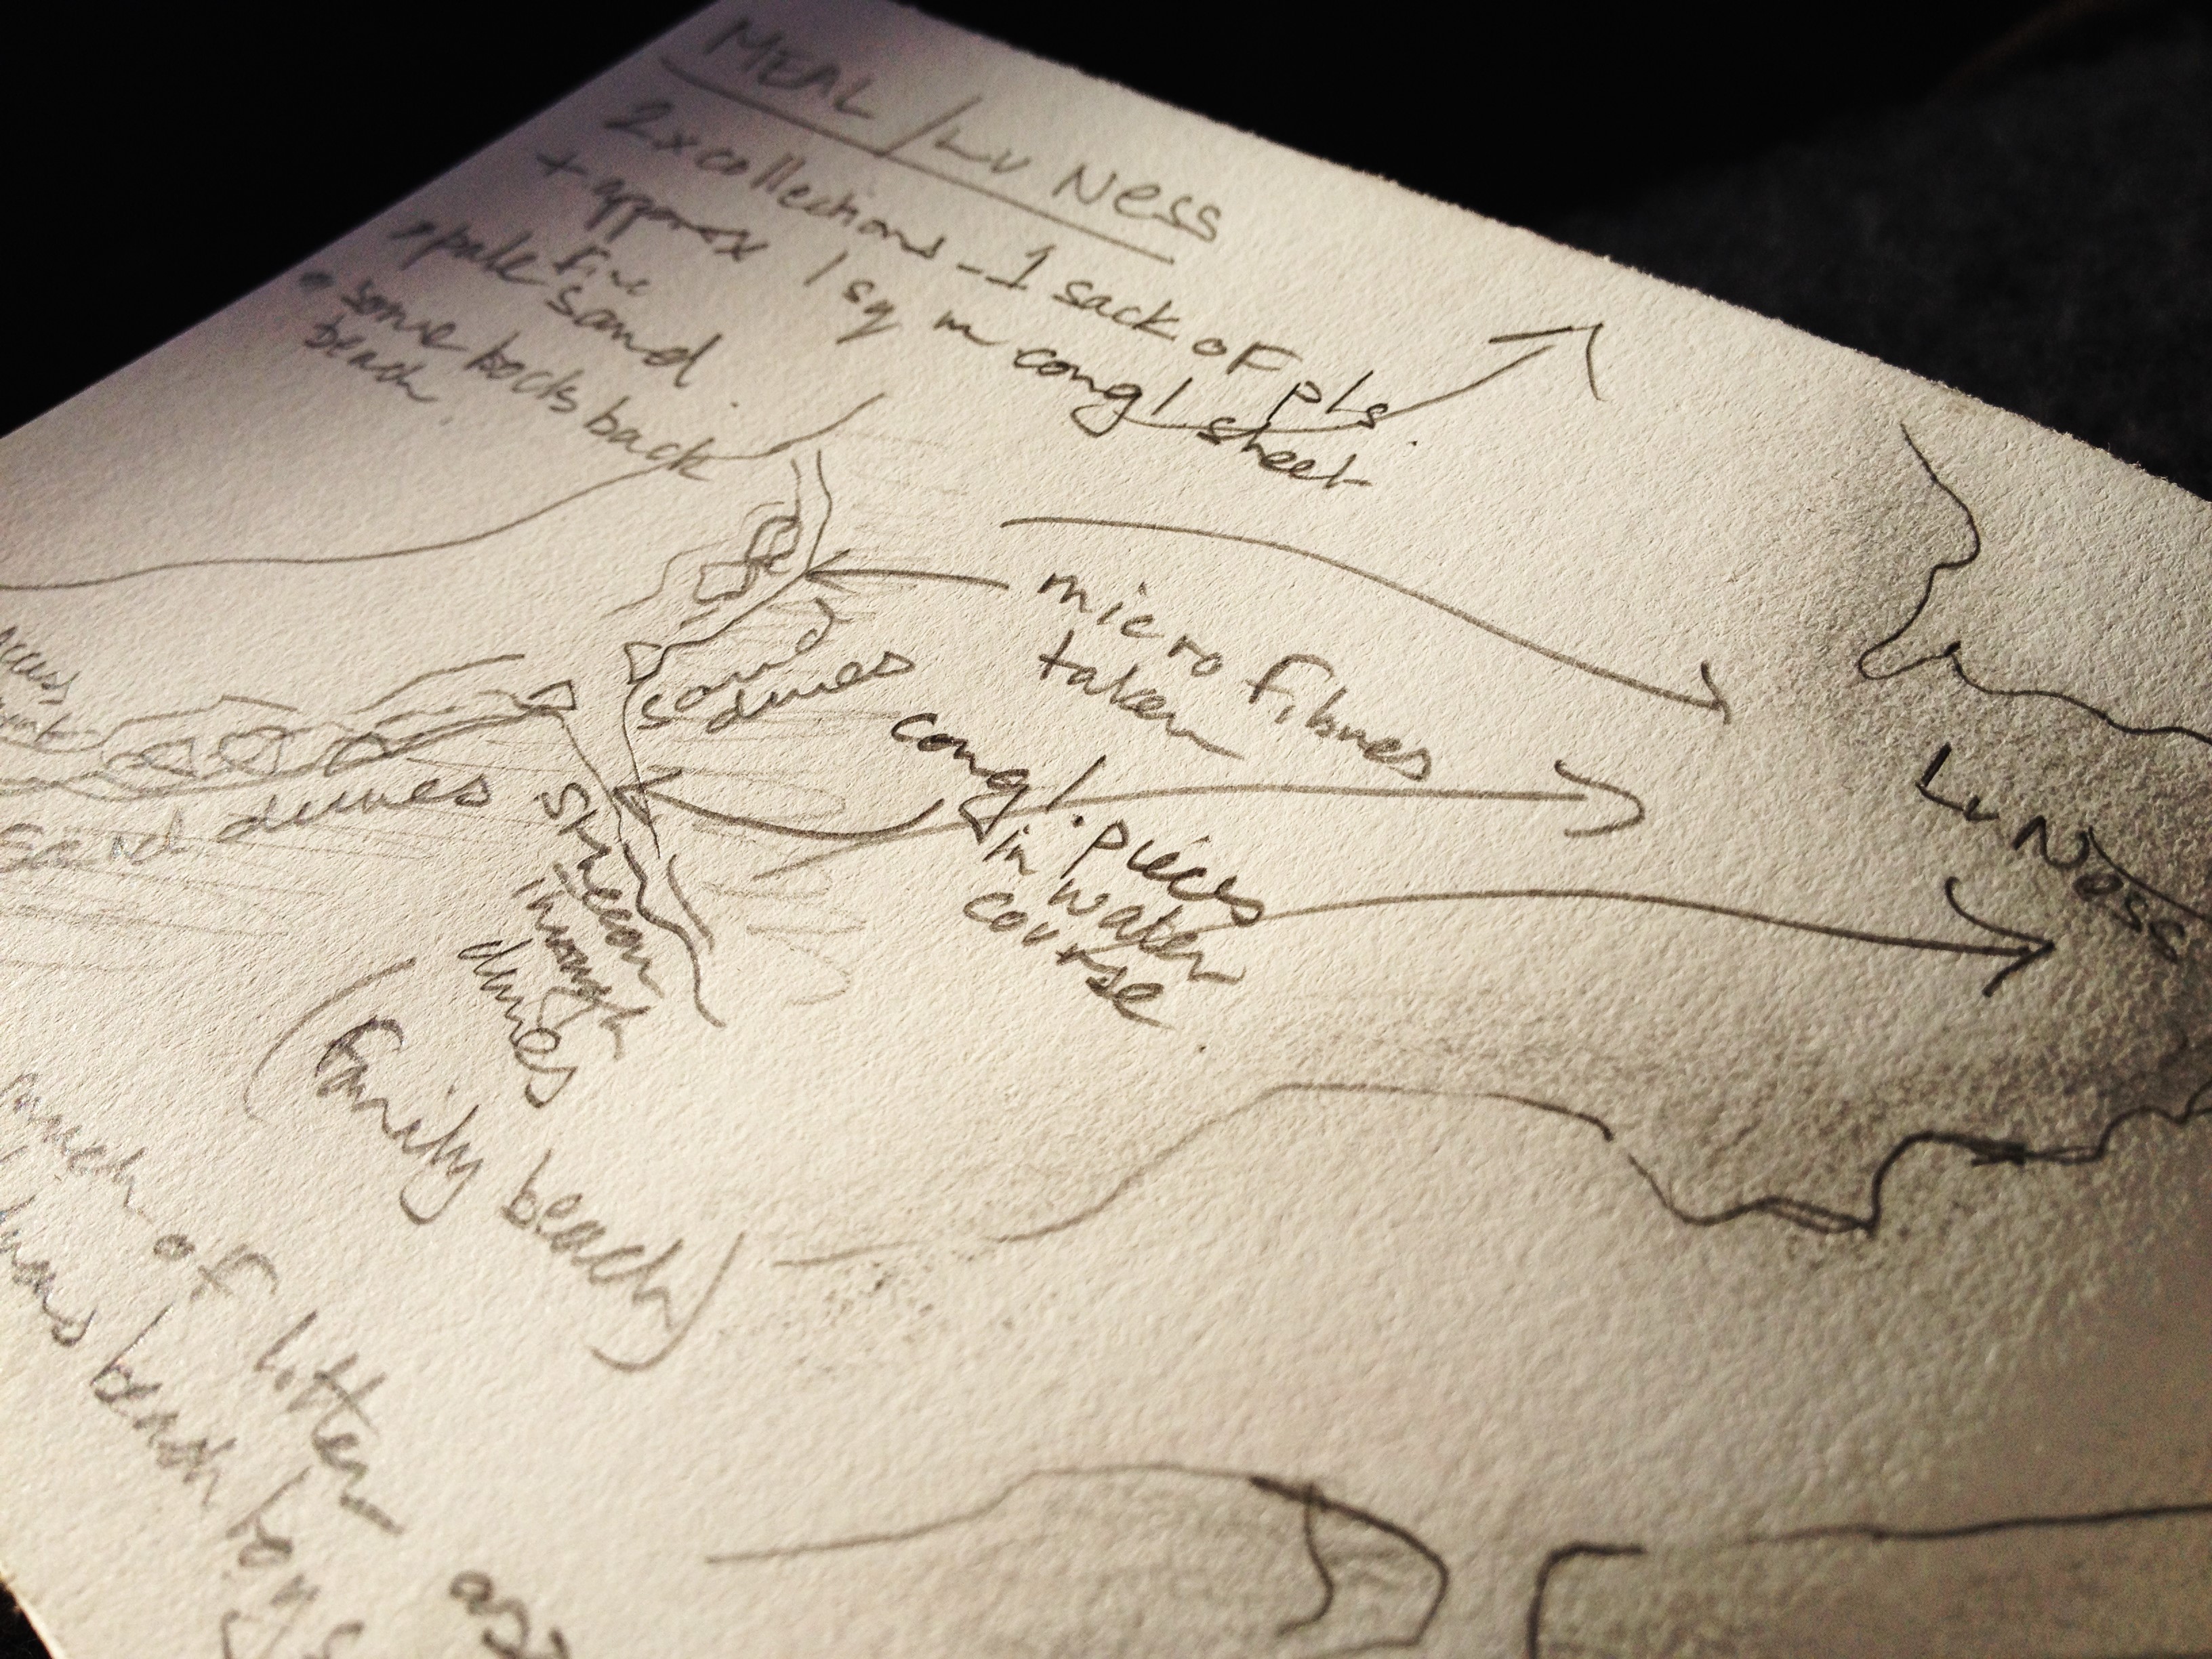 MEAL / Lu Ness
2x collections - 1 sack of pls.
+ approx 1 sq m congl sheet
• pale fine sand
• some rocks back
beach
micro fibres
taken
sand
dunes
congl. pieces
in water
course
Lu Ness
sand dunes
stream
through
dunes
(family beach)
of litter
beach